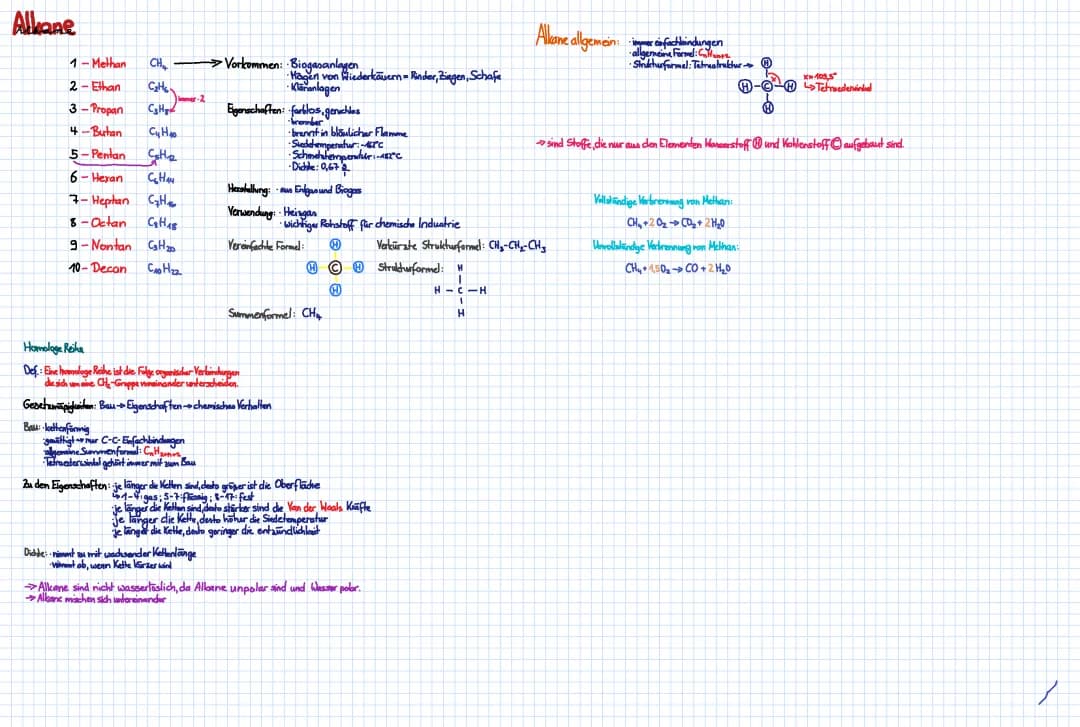 Alkane
1 - Methan CH₄
2 - Ethan C₂H₆
3 - Propan C₃H₈
immer +2
4 - Butan C₄H₁₀
5 - Pentan C₅H₁₂
6 - Hexan C₆H₁₄
7 - Heptan C₇H₁₆
8 - Octan C₈H₁₈
9 - Nontan C₉H₂₀
10 - Decan C₁₀H₂₂
→ Vorkommen: · Biogasanlagen
· Mägen von Wiederkäuern = Rinder, Ziegen, Schafe
· Kläranlagen
Eigenschaften: · farblos, geruchlos
· brennbar
· brennt in bläulicher Flamme
· Siedetemperatur:
· Schmelztemperatur: -182°C
· Dichte: 0,67
Herstellung: · aus Erdgas und Biogas
Verwendung: · Heizgas
· wichtiger Rohstoff für chemische Industrie
Vereinfachte Formel:
H
H C H
H
Verkürzte Strukturformel: CH₃-CH₂-CH₃
Strukturformel: H
H - C - H
H
Summenformel: CH₄
Alkane allgemein: · immer einfachbindungen
· allgemeine Formel: CₙH₂ₙ₊₂
· Strukturformel: Tetrastruktur →
H
H - C - H
H
↳ Tetraederwinkel
→ sind Stoffe, die nur aus den Elementen Wasserstoff H und Kohlenstoff C aufgebaut sind.
Vollständige Verbrennung von Methan:
CH₄ + 2 O₂ → CO₂ + 2 H₂O
Unvollständige Verbrennung von Methan:
CH₄ + 1,5 O₂ → CO + 2 H₂O
Homologe Reihe
Def.: Eine homologe Reihe ist die Folge organischer Verbindungen
die sich um eine CH₂-Gruppe voneinander unterscheiden.
Gesetzmäßigkeiten: Bau → Eigenschaften → chemisches Verhalten
Bau: · kettenförmig
· gesättigt → nur C-C-Einfachbindungen
· allgemeine Summenformel: CₙH₂ₙ₊₂
· Tetraederwinkel gehört immer mit zum Bau
Zu den Eigenschaften: · je länger die Ketten sind, desto größer ist die Oberfläche
↳ 1-4: gas; 5-7: flüssig; 8-17: fest
· je länger die Ketten sind, desto stärker sind die Van der Waals Kräfte
· je länger die Kette, desto höher die Siedetemperatur
· je länger die Kette, desto geringer die entzündlichkeit
Dichte: · nimmt zu mit wachsender Kettenlänge
· nimmt ab, wenn Kette kürzer wird
→ Alkane sind nicht wasserlöslich, da Alkane unpolar sind und Wasser polar.
→ Alkane mischen sich untereinander